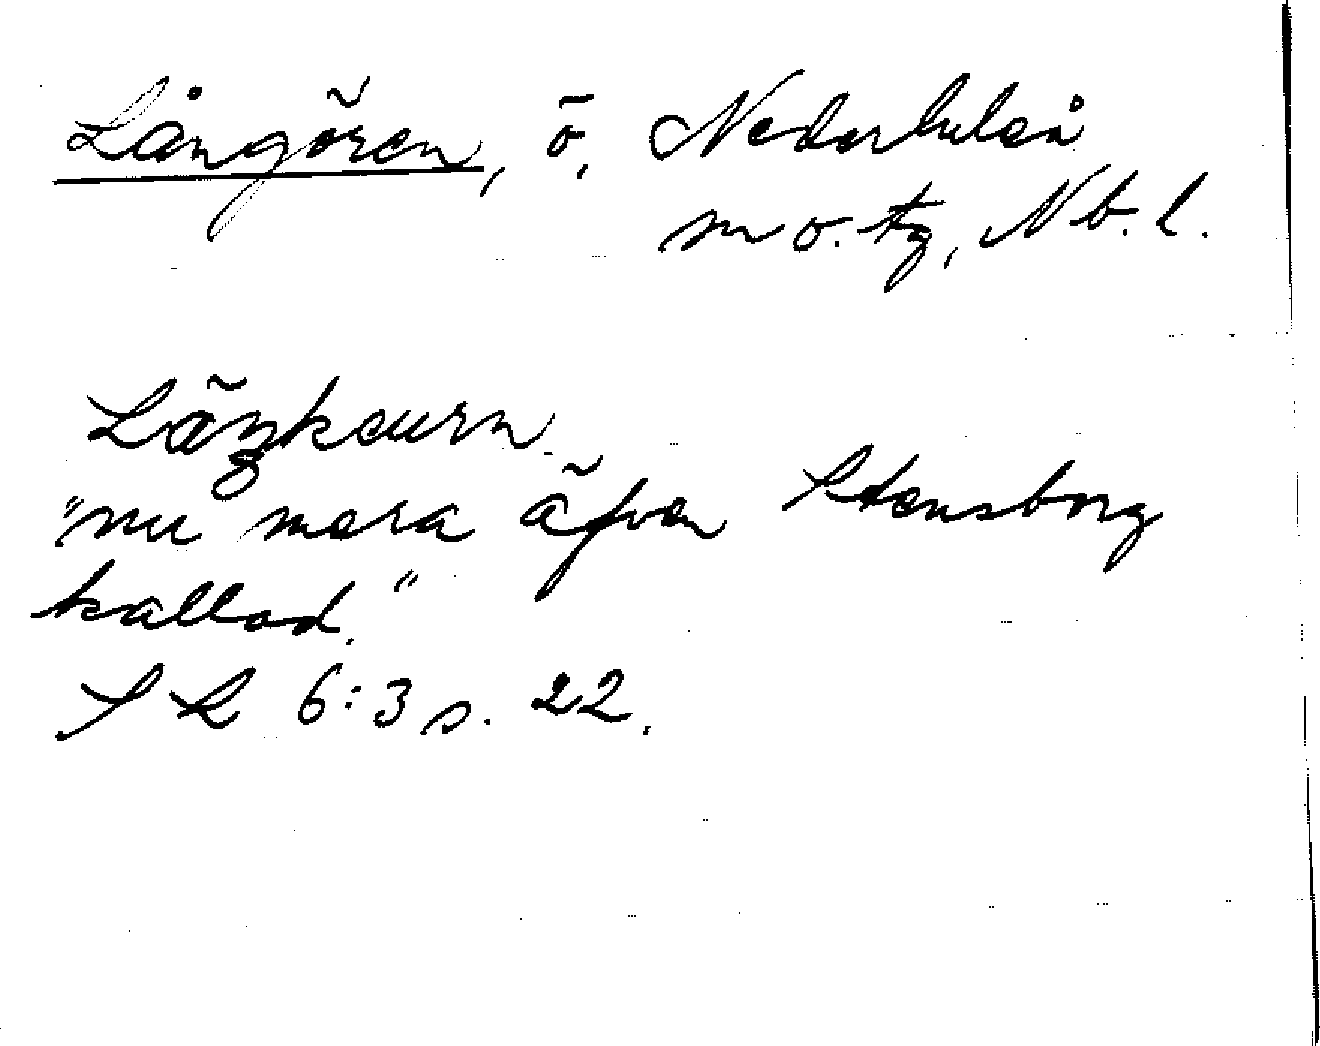 Långören, ö, Nederluleå
sn o. tg, Nb. l.
"nu mera äfven Stensborg
kallad."
S R 6:3 s. 22.